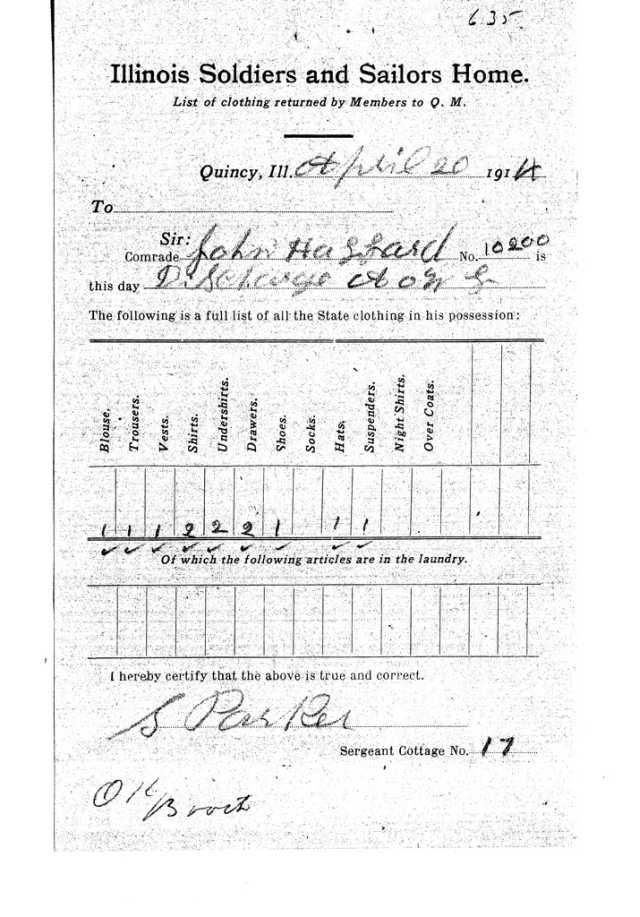 635
Illinois Soldiers and Sailors Home.
List of clothing returned by Members to Q. M.
Quincy, Ill. April 20 1914
To
Sir:
Comrade John Haggard No. 10200 is
this day Discharge
The following is a full list of all the State clothing in his possession:
Blouse. Trousers. Vests. Shirts. Undershirts. Drawers. Shoes. Socks. Hats. Suspenders. Night Shirts. Over Coats.
1 1 1 2 2 2 1 1 1
Of which the following articles are in the laundry.
I hereby certify that the above is true and correct.
S Parker
Sergeant Cottage No. 17
OK